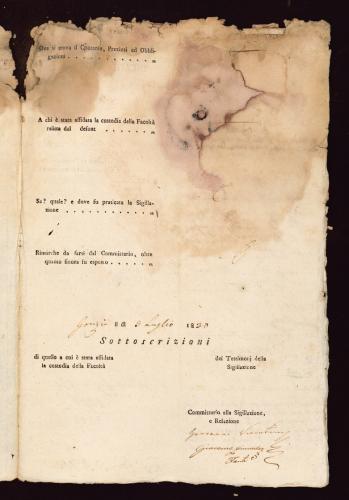 Ove si trova il Contante, Preziosi ed Obbli-
gazioni . . . . . . . . . . . . . „
A chi è stata affidata la custodia della Facoltà
relitta dal defont . . . . . . . „
Se? quale? e dove fu praticata la Sigilla-
zione . . . . . . . . . . . . . „
Rimarche da farsi dal Commissario, oltre
quanto finora fu esposto . . . . . „
li 5 Luglio 18
Sottoscrizioni
di quello a cui è stata affidata
la custodia della Facoltà
dei Testimonj della
Sigillazione
Commissario alla Sigillazione,
e Relazione
Giovanni
Giacomo